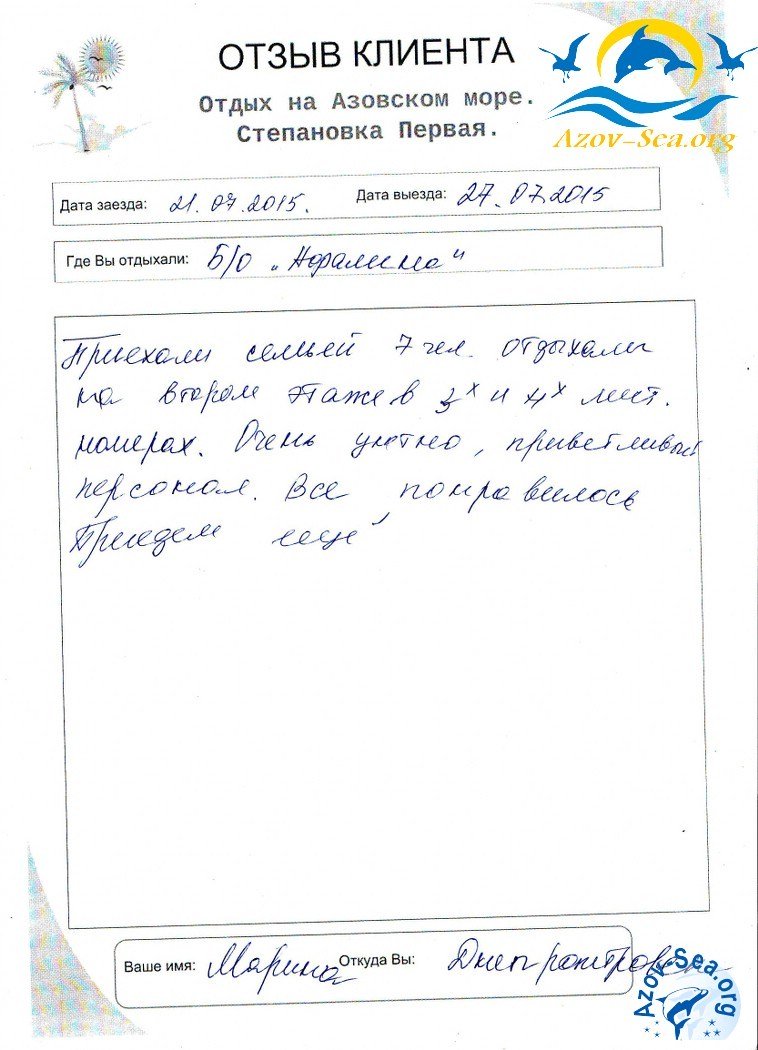 ОТЗЫВ КЛИЕНТА
Отдых на Азовском море.
Степановка Первая.
Azov-Sea.org
Дата заезда: 21.07.2015. Дата выезда: 27.07.2015
Где Вы отдыхали: Б/О "Адралина"
Приехали семьей 7 чел. отдыхали
на втором этаже в 3х и 4х мест.
номерах. Очень уютно, приветливый
персонал. Все понравилось
Приедем еще
Ваше имя: Марина Откуда Вы: Днепропетровск
Azov-Sea.org